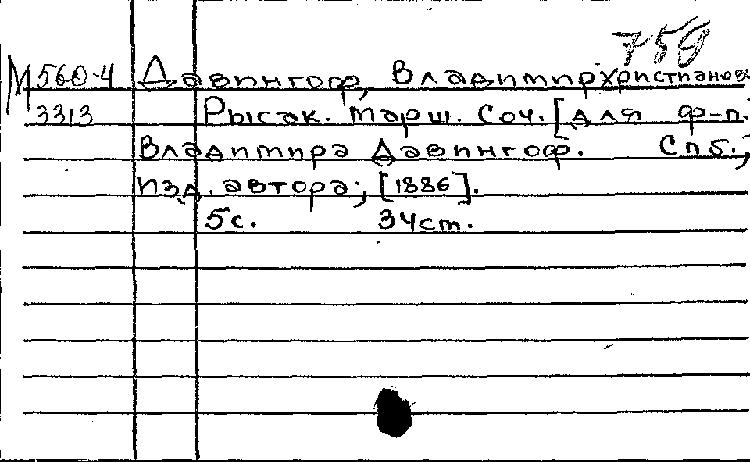 759
М 560-4 Давингоф, Владимир Христианов
3313 Рысак. Марш. Соч. [для ф-п.
Владимира Давингоф. Спб.,
изд. автора, [1886].
5с. 34см.